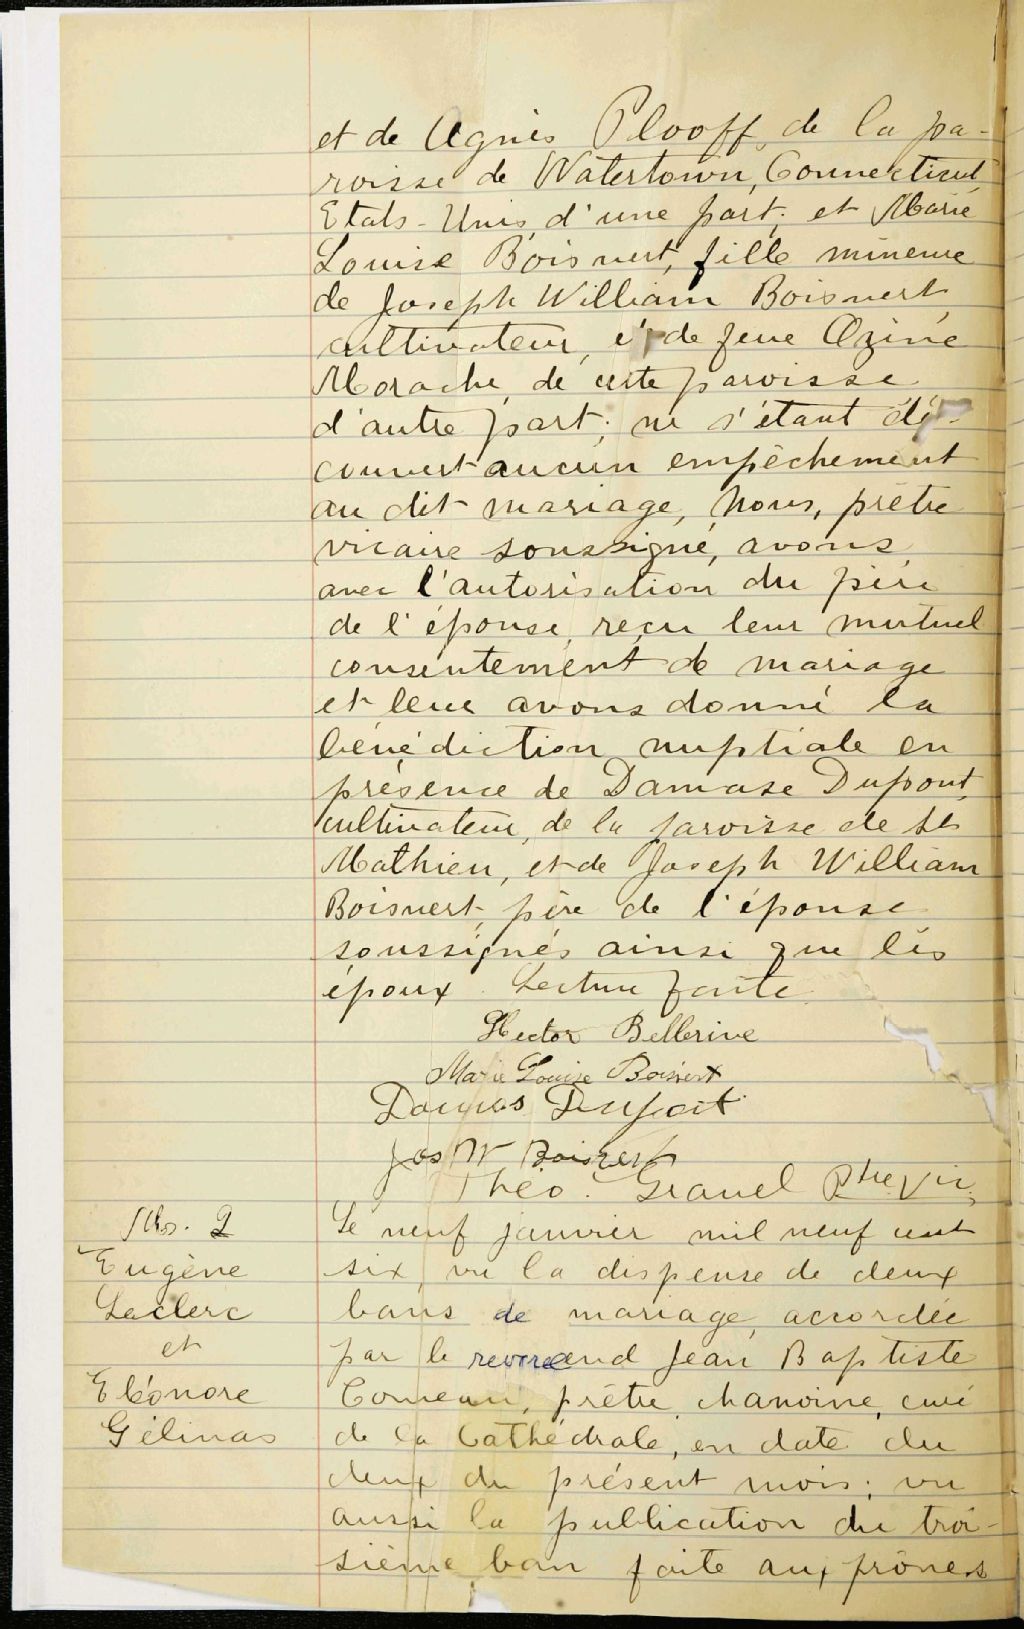 et de Agnès Plooff, de la pa-
roisse de Watertown, Connecticut
Etats-Unis, d'une part; et Marie
Louise Boisvert, fille mineure
de Joseph William Boisvert,
cultivateur, et de feue Ozine
Morache, de cette paroisse
d'autre part; ne s'étant dé-
couvert aucun empêchement
au dit mariage, Nous, prêtre
vicaire soussigné, avons
avec l'autorisation du père
de l'épouse, reçu leur mutuel
consentement de mariage
et leur avons donné la
bénédiction nuptiale en
présence de Damase Dupont,
cultivateur, de la paroisse de St
Mathieu, et de Joseph William
Boisvert, père de l'épouse
soussignés ainsi que les
époux. Lecture faite.
Hector Bellerive
Marie Louise Boisvert
Damas Dupont
Jos W Boisvert
Théo. Gravel Ptre Vic.
No. 2
Eugène
Leclerc
et
Eléonore
Gélinas
Le neuf janvier mil neuf cent
six, vu la dispense de deux
bans de mariage, accordée
par le reverend Jean Baptiste
Comeau, prêtre, chanoine, curé
de la Cathédrale, en date du
deux du présent mois; vu
aussi la publication du troi-
sième ban faite aux prônes